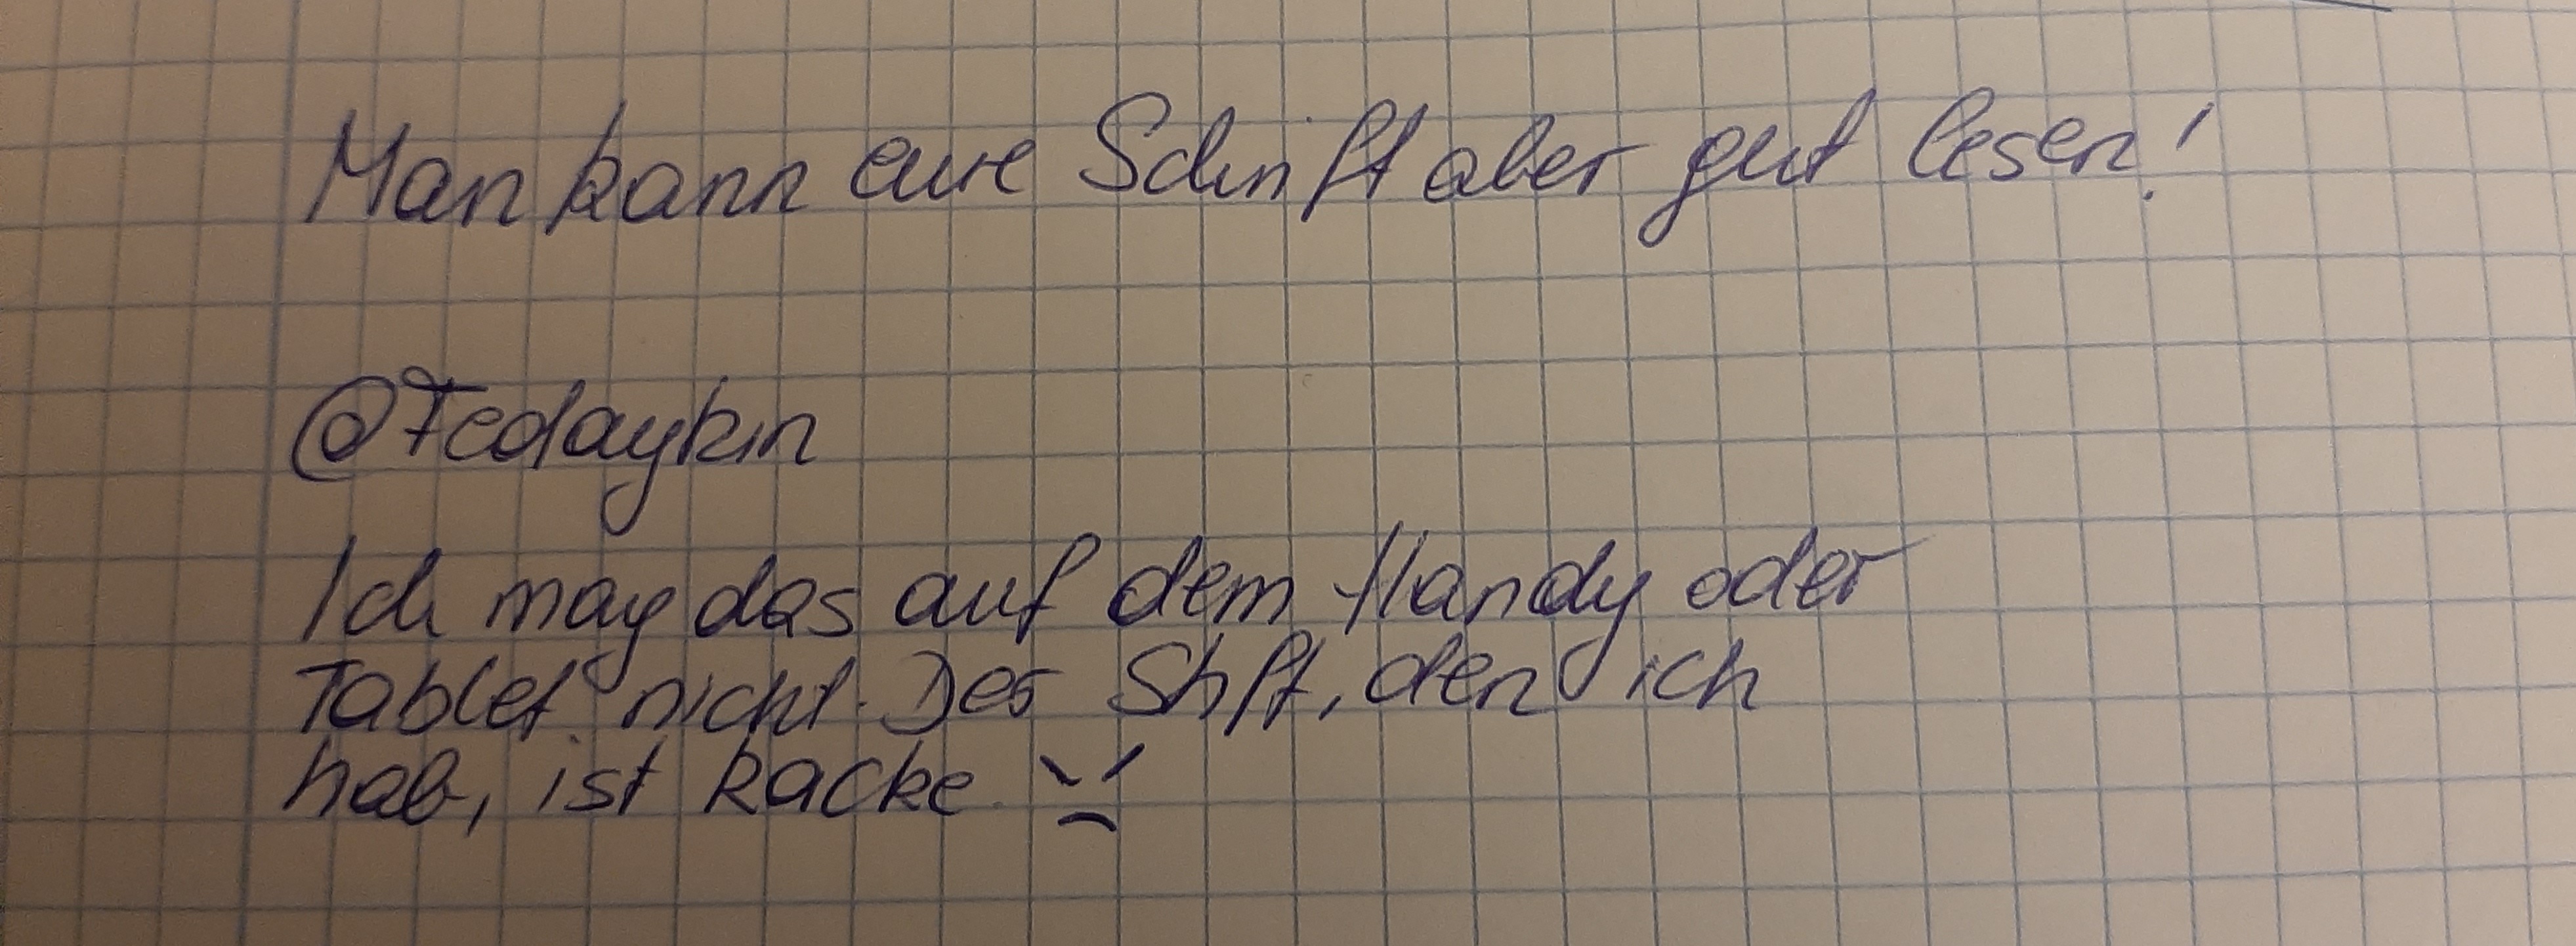 Man kann eure Schrift aber gut lesen!
@Fedaykin
Ich mag das auf dem Handy oder
Tablet nicht. Der Stift, den ich
hab, ist kacke.